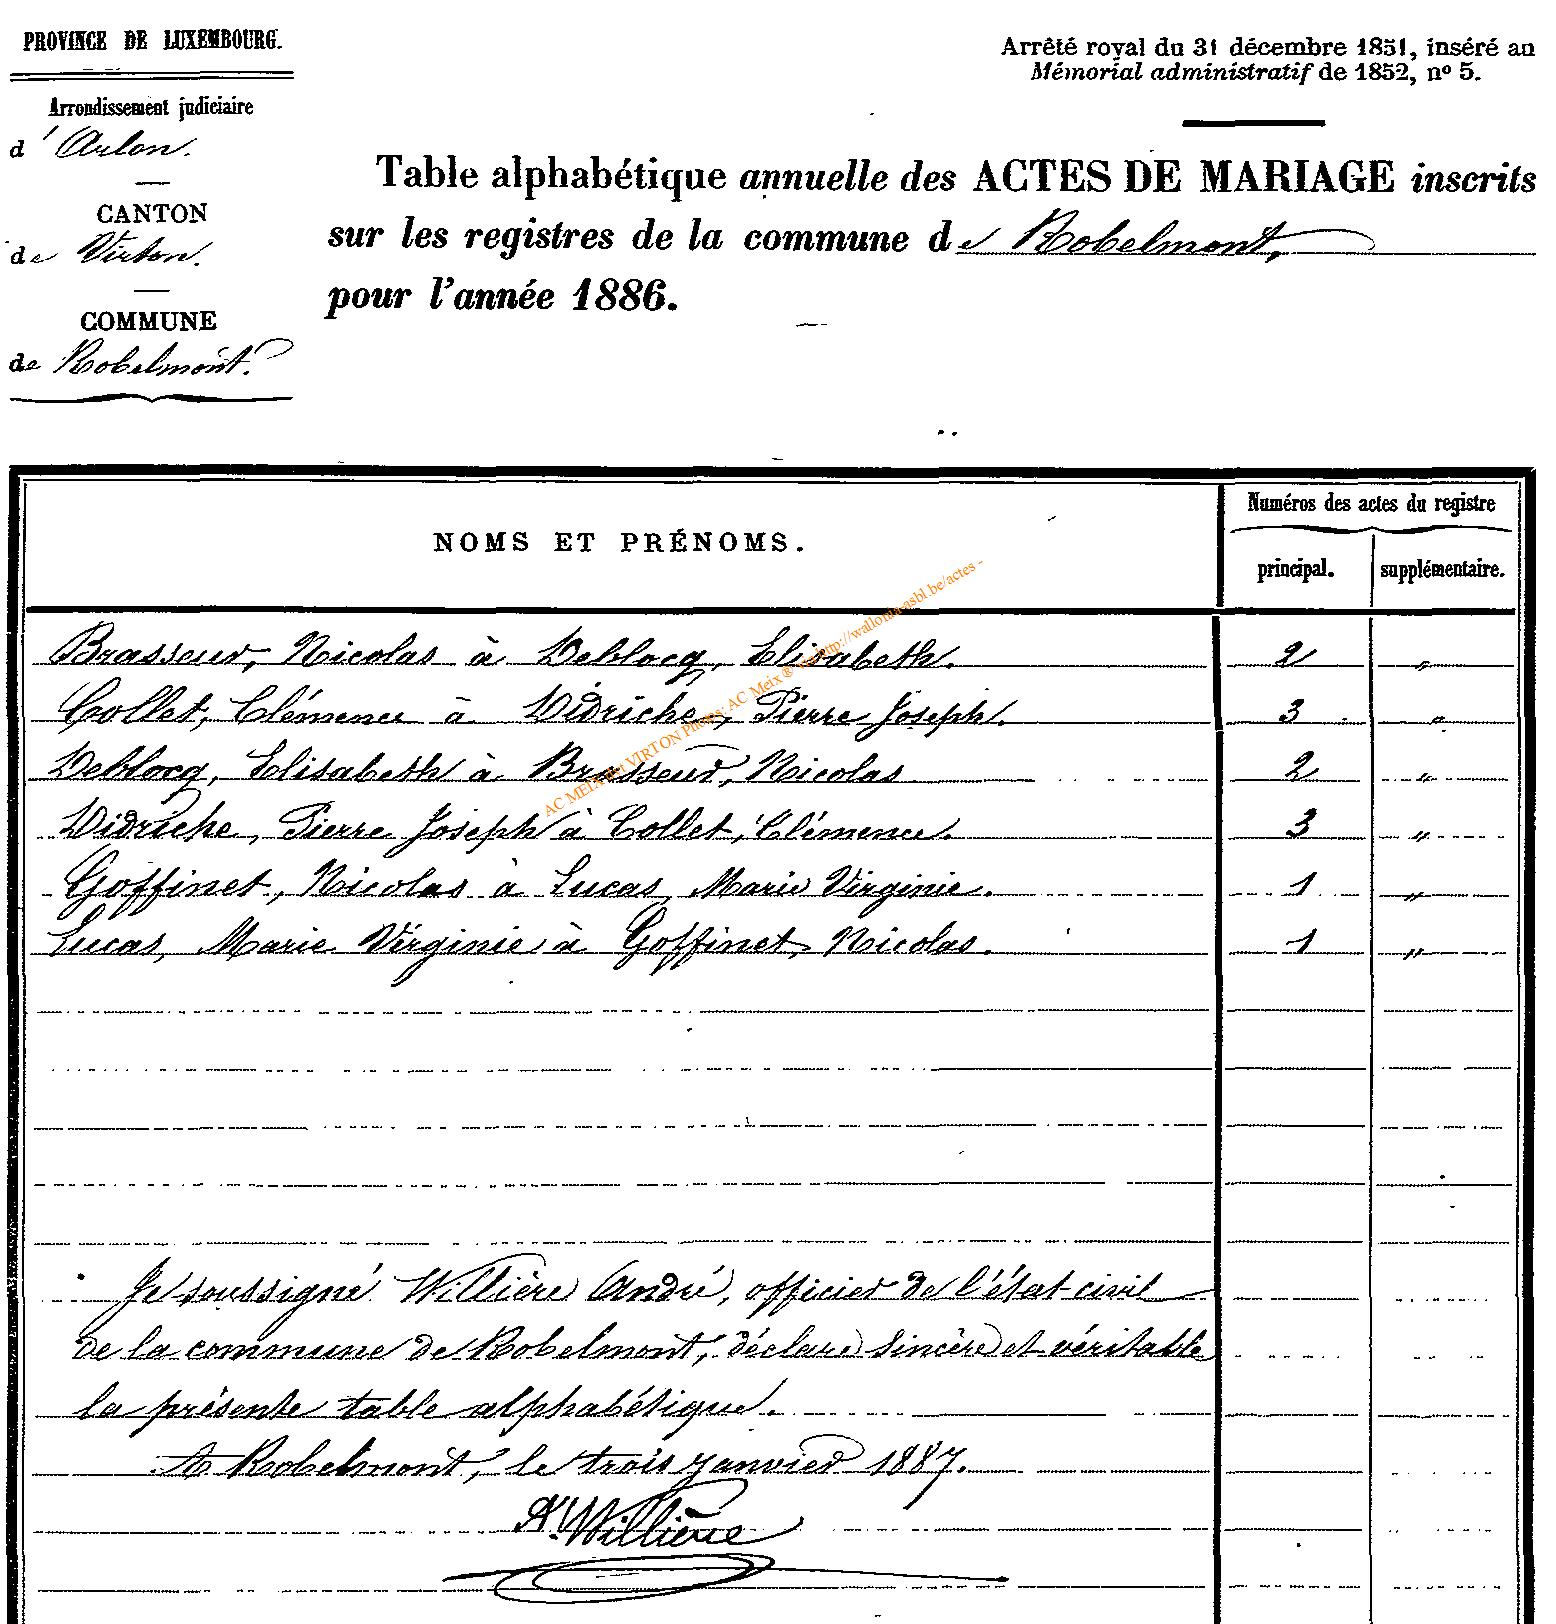 PROVINCE DE LUXEMBOURG.
Arrondissement judiciaire
d'Arlon.
CANTON
de Virton.
COMMUNE
de Robelmont.
Arrêté royal du 31 décembre 1851, inséré au
Mémorial administratif de 1852, nº 5.
Table alphabétique annuelle des ACTES DE MARIAGE inscrits
sur les registres de la commune de Robelmont,
pour l'année 1886.
NOMS ET PRÉNOMS.
Numéros des actes du registre
principal. supplémentaire.
Brasseur, Nicolas à Deblocq, Elisabeth. 2 "
Collet, Clémence à Didriche, Pierre Joseph. 3 "
Deblocq, Elisabeth à Brasseur, Nicolas 2 "
Didriche, Pierre Joseph à Collet, Clémence. 3 "
Goffinet, Nicolas à Lucas, Marie Virginie. 1 "
Lucas, Marie Virginie à Goffinet, Nicolas. 1 "
Je soussigné Willière André, officier de l'état civil
de la commune de Robelmont, déclare sincère et véritable
la présente table alphabétique.
A Robelmont, le trois janvier 1887.
A. Willière
VIRTON Photos: AC Meix ® http://wallonia-asbl.be/actes -